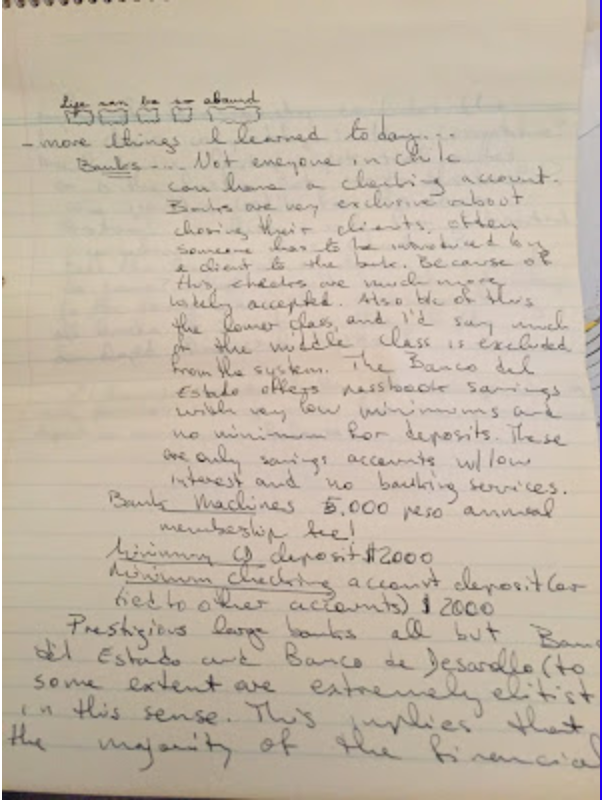 life can be so absurd
- more things I learned today...
Banks... Not everyone in Chile
can have a checking account.
Banks are very exclusive about
chosing their clients, often
someone has to be introduced by
a client to the bank. Because of
this, checks are much more
widely accepted. Also b/c of this
the lower class, and I'd say much
of the middle class is excluded
from the system. The Banco del
Estado offers passbook savings
with very low minimums and
no minimum for deposits. These
are only savings accounts w/low
interest and no banking services.
Bank Machines 5,000 peso annual
membership fee!
Minimum CD deposit $2000
Minimum checking account deposit (or
tied to other accounts) $2000
Prestigious large banks all but Banc
del Estado and Banco de Desarollo (to
some extent are extremely elitist
in this sense. This implies that
the majority of the financial